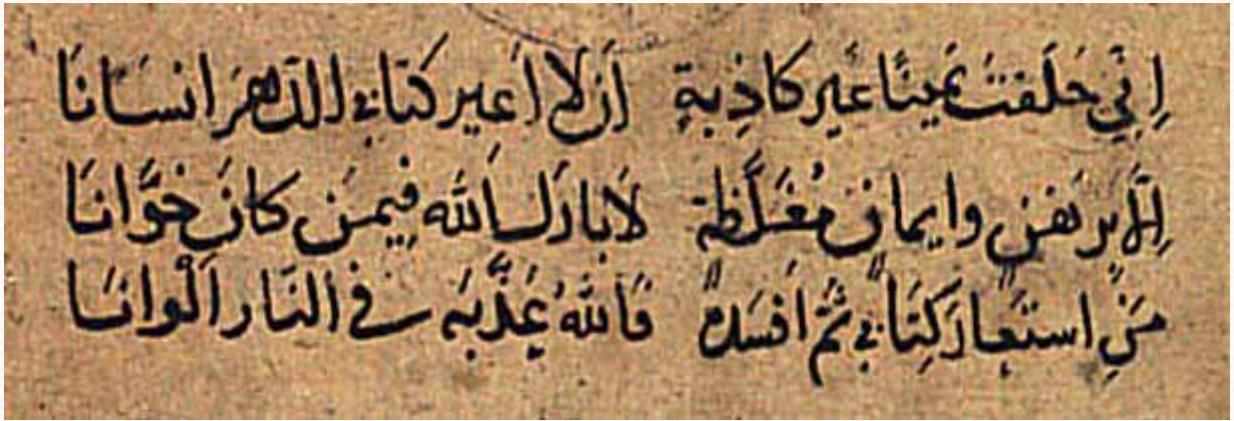 اِنِّي حَلَفتُ يَمينًا غَير كاذِبةٍ اَن لَا اُعير كتَابي الدّهرَ انسَانَا
وايمان مُغَلَّظة لَا بارَك اَلله فِيمَن كانَ خَوَّانَا
مَنِ استَعَارَ كِتَابي ثُم اَفسَدهُ فَاَلله يُعَذّبه في النَّار اَلْوانَا